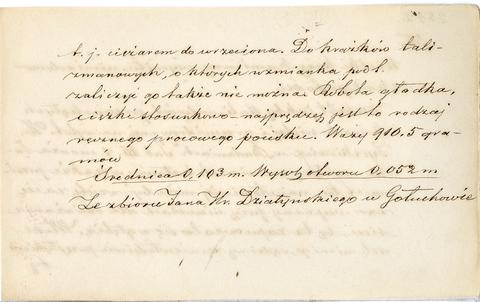 t. j. ciężarem do wrzeciona. Do krążków tali-
zmanowych, o których wzmianka pod l.
zaliczyć go także nie można. Robota gładka,
ciężki stosunkowo – najprędzej jest to rodzaj
ręcznego procowego pocisku. Waży 910.5 gra-
mów
Średnica 0,103 m. otworu 0,052 m
Ze zbioru Jana Hr. Działyńskiego w Gołuchowie